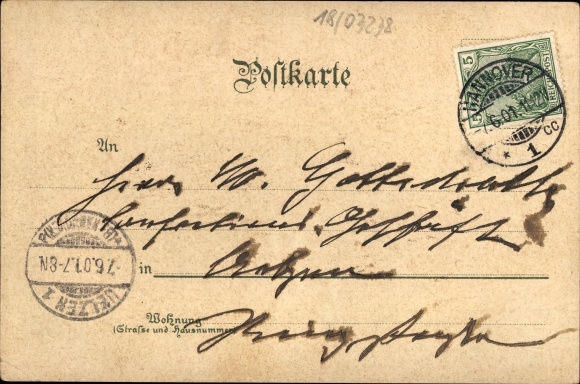 18/03238
Postkarte
5
5
HANNOVER
7.6.01.
* 1 CC
An
Herrn W. Gottschalk
Confections-Geschäft
7.6.01.7-8N
UELZEN 1
in Uelzen
Wohnung
(Straße und Hausnummer)